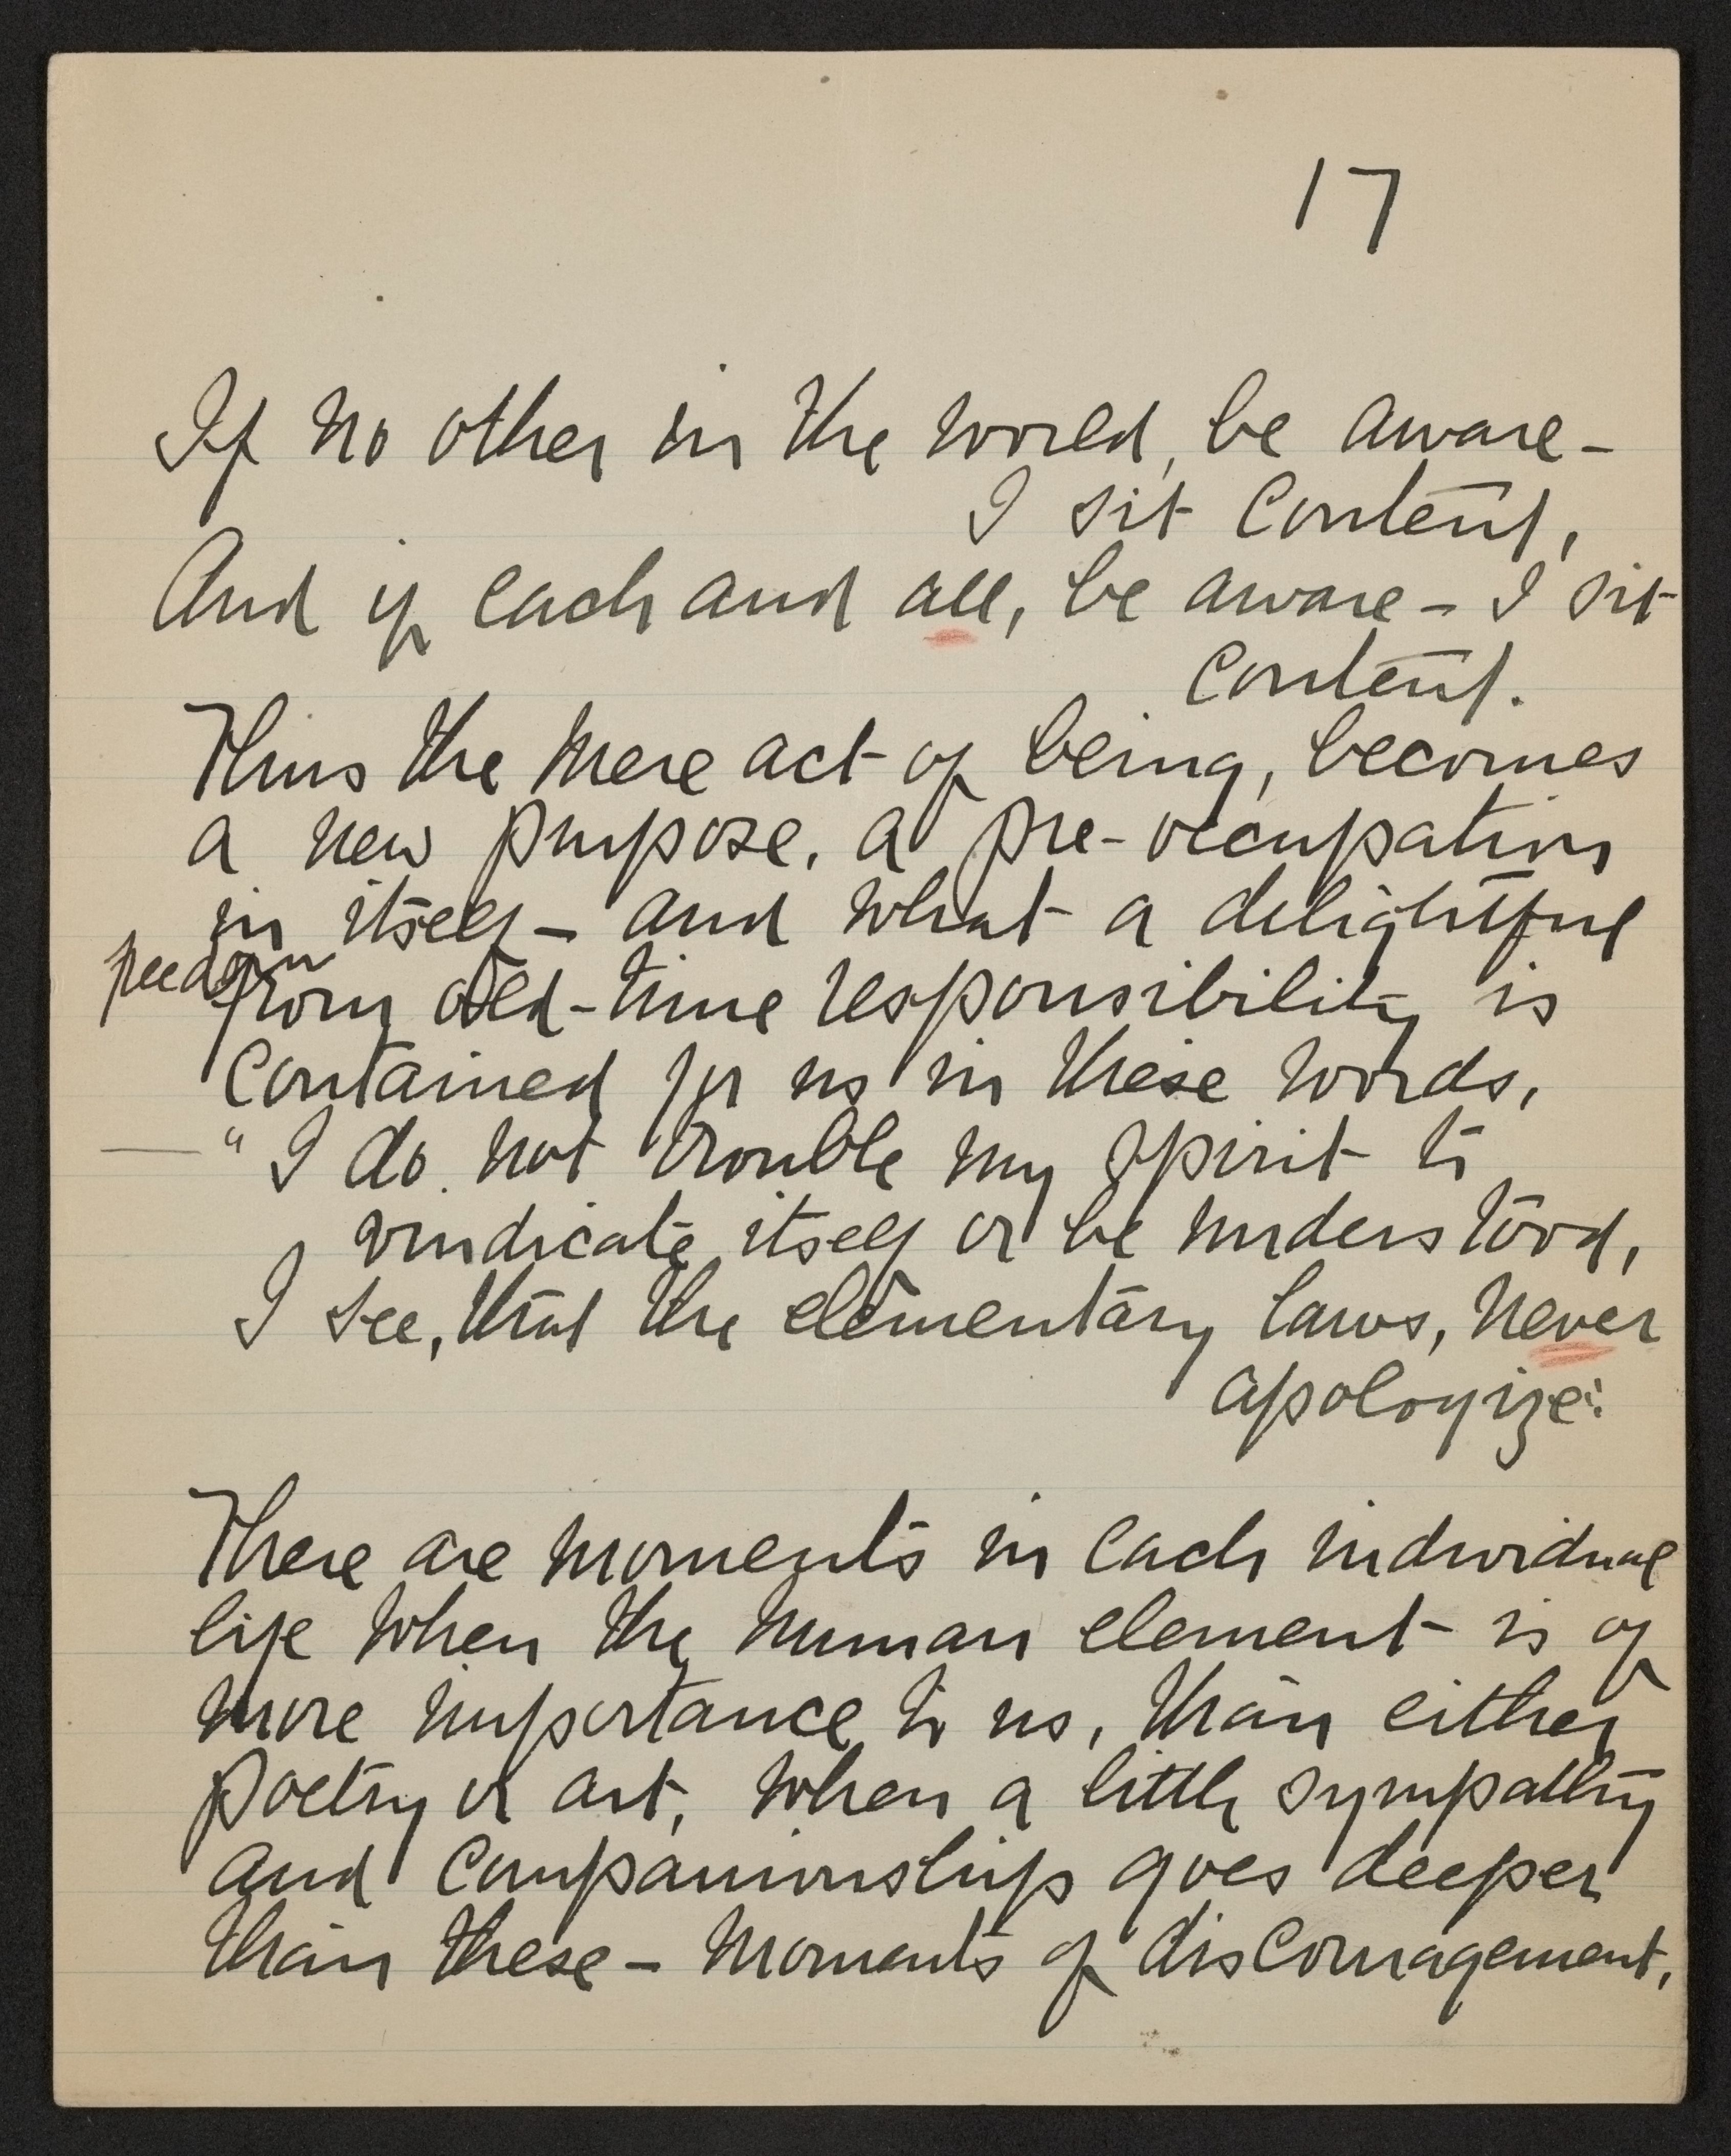 17
If no other in the world, be aware -
I sit content,
And if each and all, be aware - I sit
content.
Thus the mere act of being, becomes
a new purpose, a pre-occupation
in itself - and what a delightful
freedom
from old-time responsibility is
contained for us in these words,
— " I do not trouble my spirit to
vindicate itself or be understood,
I see, that the elementary laws, never
apologize."
There are moments in each individual
life when the human element is of
more importance to us, than either
poetry or art, when a little sympathy
and companionship goes deeper
than these - moments of discouragement,